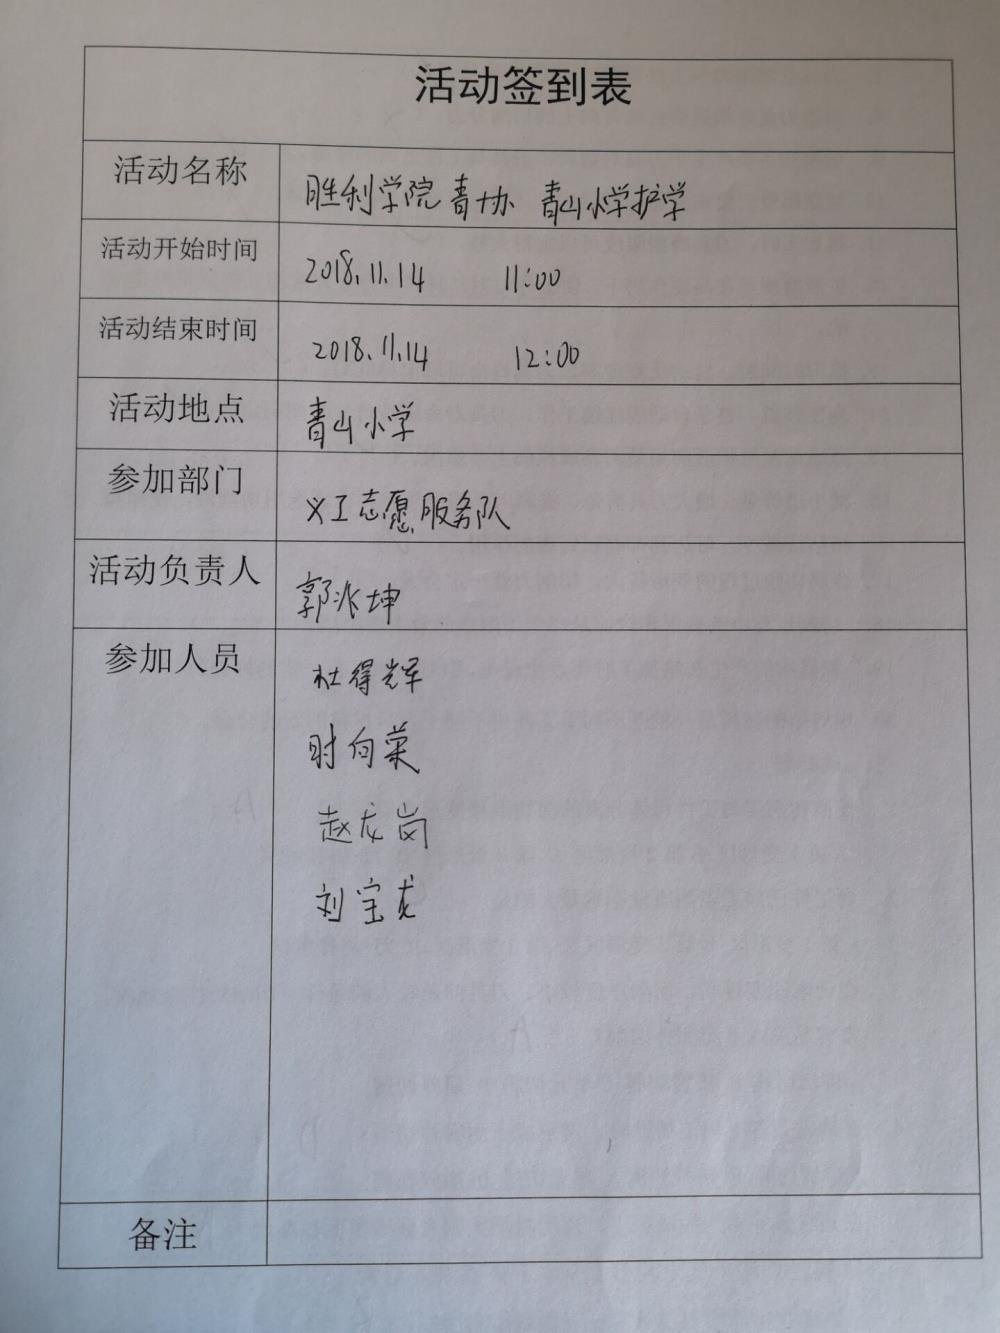 活动签到表
活动名称 胜利学院青协 青山小学护学
活动开始时间 2018.11.14 11:00
活动结束时间 2018.11.14 12:00
活动地点 青山小学
参加部门 义工志愿服务队
活动负责人 郭兆坤
参加人员 杜得辉
时向荣
赵龙岗
刘宝龙
备注